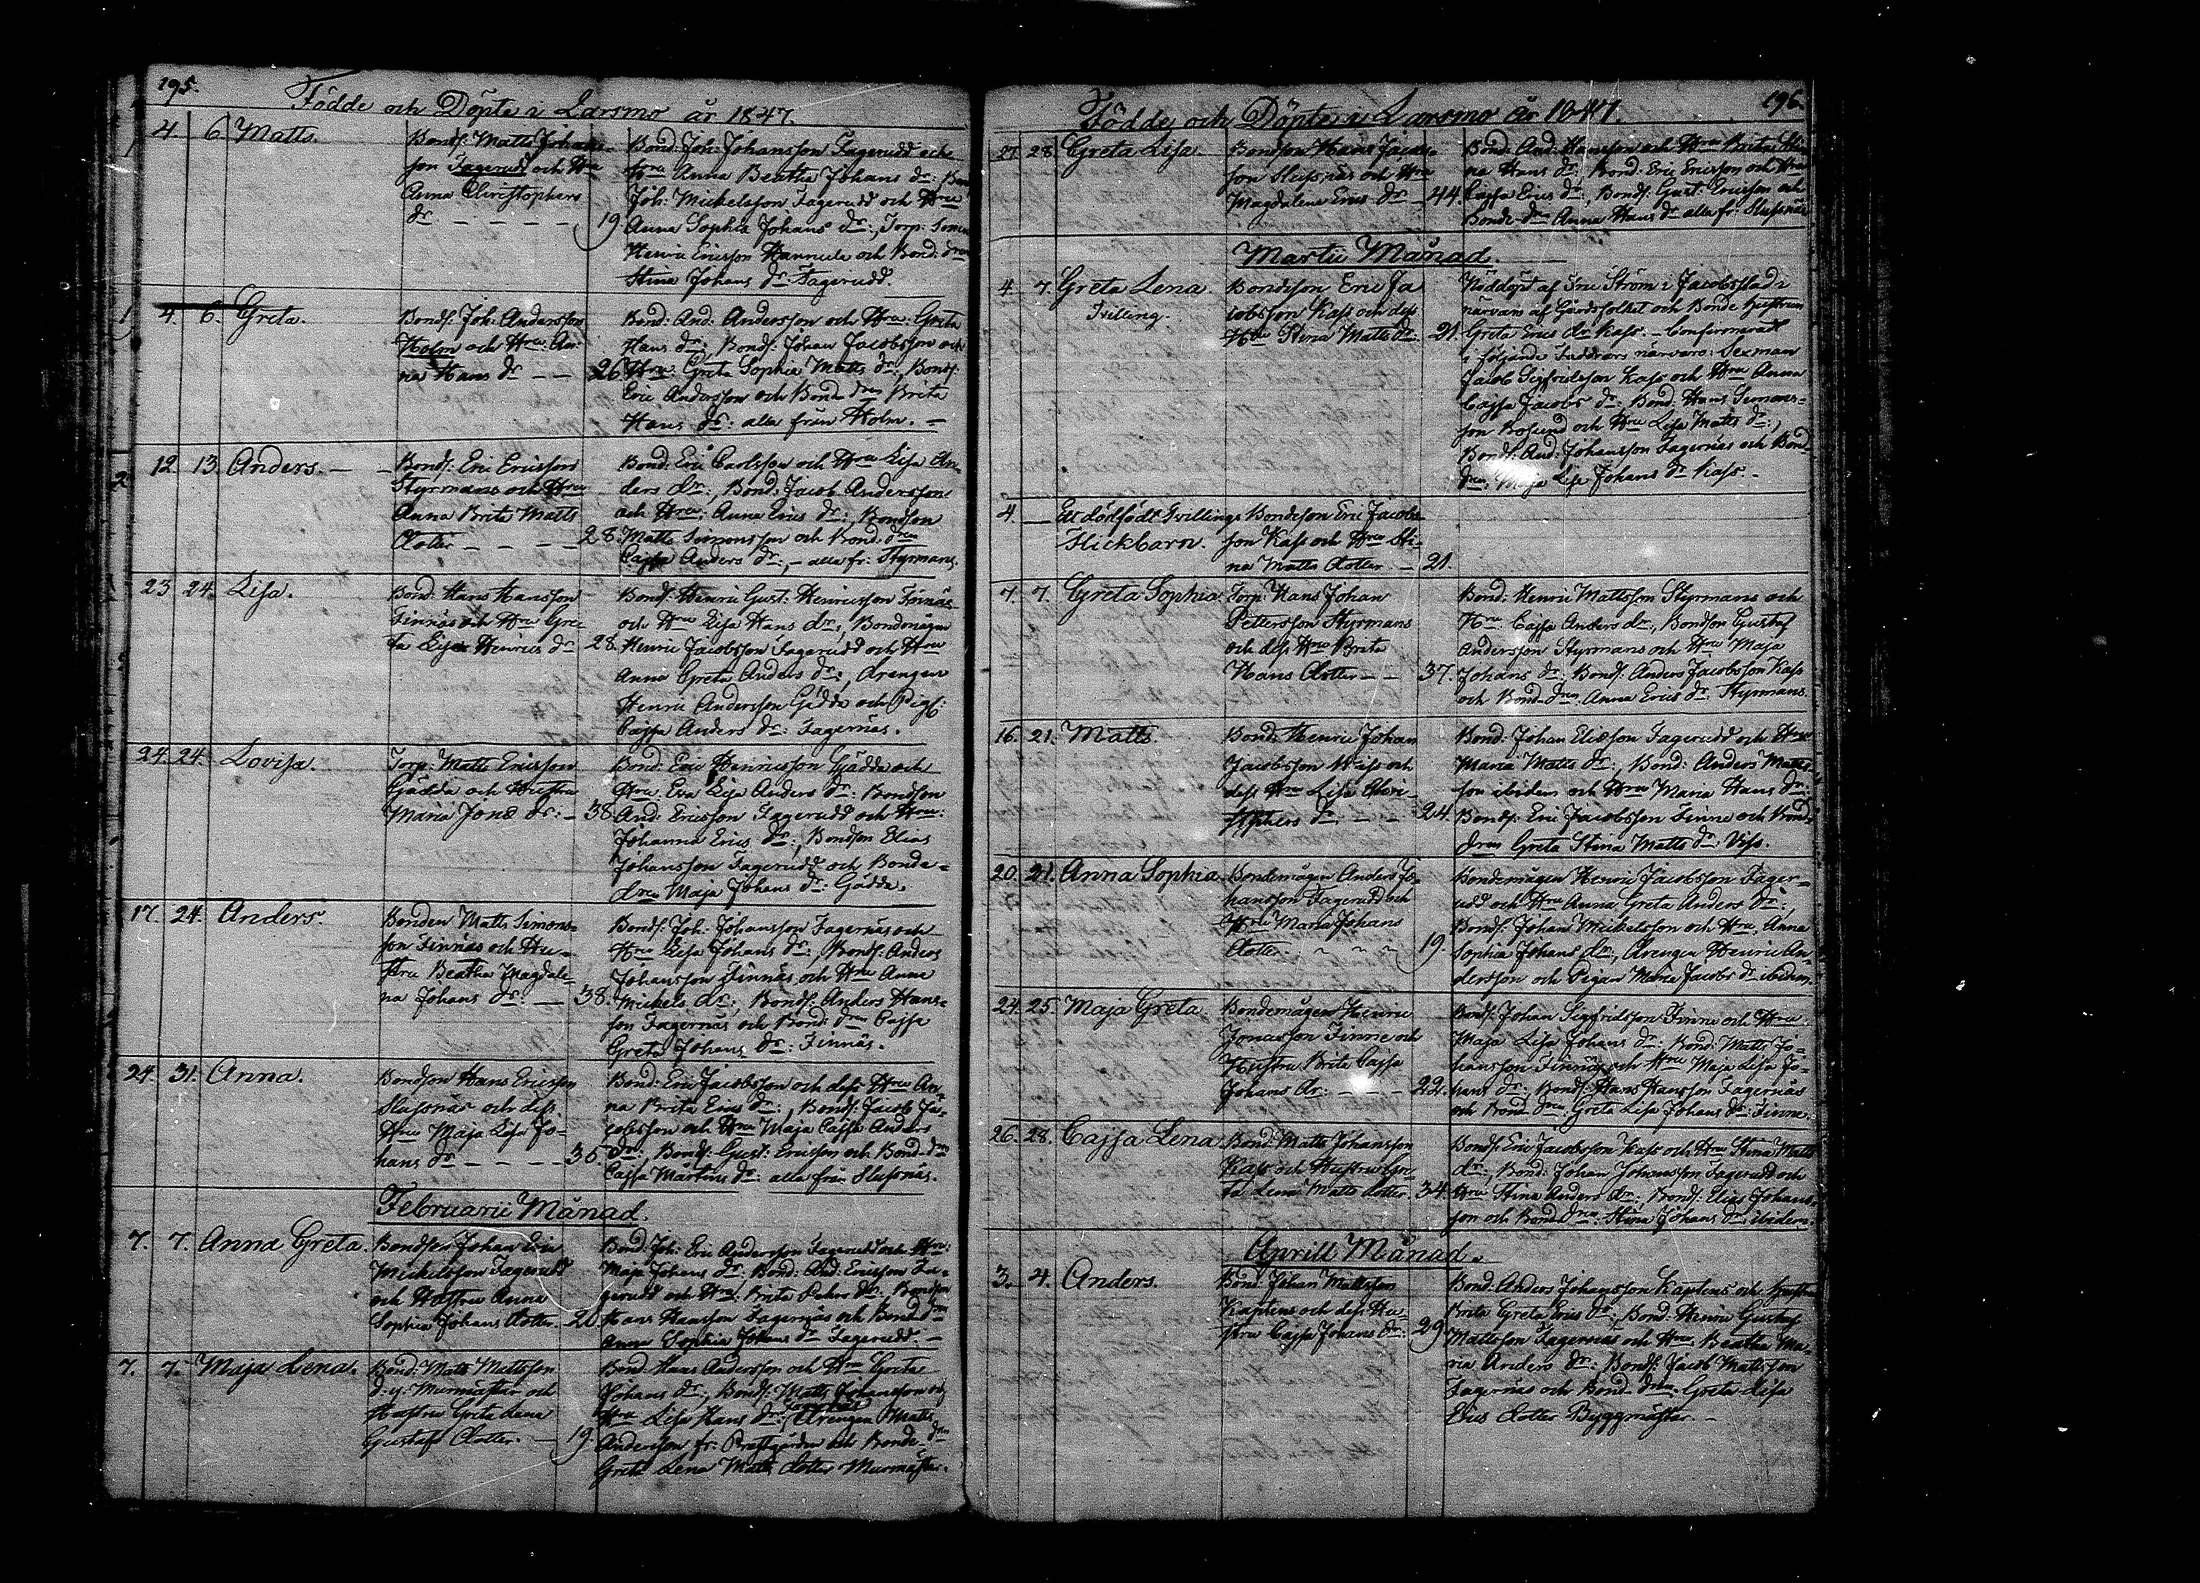 195.
Födde och Döpte i Larsmo år 1847.
4. 6. Matts.
Bonds: Matts Johans-
son Fagerudd och Hru
Anna Christophers
dr 19.
Bond: Joh: Johansson Fagerudd och
Hru Anna Beatha Johans dr:
Joh: Mickelsson Fagerudd och Hru
Anna Sophia Johans dr:, Torp: Sonen
Henric Ericsson Hannula och Bond: drn
Stina Johans dr: Fagerudd.
4. 6. Greta.
Bonds: Joh: Andersson
Holm och Hru: An-
na Hans dr 26.
Bond: And: Andersson och Hru: Greta
Hans dr:, Bonds: Johan Jacobsson och
Hru: Greta Sophia Matts dr:, Bonds:
Eric Andersson och Bond drn Brita
Hans dr: alla från Holm.
12. 13. Anders.
Bonds: Eric Ericsson
Styrmans och Hru
Anna Brita Matts
Dotter 28.
Bond: Eric Carlsson och Hru Lisa An-
ders dr:, Bond: Jacob Andersson
och Hru: Anna Erics dr:, Bondson
Matts Simonsson och Bond: drn
Cajsa Anders dr:, alla fr: Styrmans.
23 24. Lisa.
Bond: Hans Hansson
Finnäs och Hru Gre-
ta Lisa Henrics dr 28.
Bonds: Henric Gust: Henricsson Finnäs
och Hru Lisa Hans dr:, Bondemågen
Henric Jacobsson Fagerudd och Hru
Anna Greta Anders dr:, Drengen
Henric Andersson Gädda och Pig:
Cajsa Anders dr: Fagernäs.
24. 24. Lovisa.
Torp: Matts Ericsson
Gädda och Hustru
Maria Jons dr: 38.
Bond: Eric Henricsson Gädda och
Hru: Eva Lisa Anders dr: Bondson
And: Ericsson Fagerudd och Hru:
Johanna Erics dr:, Bondson Elias
Johansson Fagerudd och Bonde-
drn Maja Johans dr: Gädda.
17. 24. Anders.
Bonden Matts Simons-
son Finnäs och Hu-
stru Beatha Magdale-
na Johans dr: 38.
Bonds: Joh: Johansson Fagernäs och
Hru Lisa Johans dr:, Bonds: Anders
Johansson Finnäs och Hru Anna
Mickels dr:, Bonds: Anders Hans-
son Fagernäs och Bond: drn Cajsa
Greta Johans dr: Finnäs.
24. 31. Anna.
Bondson Hans Ericsson
Slussnäs och dess
Hru Maja Lisa Jo-
hans dr 35.
Bond: Eric Jacobsson och dess Hru An-
na Brita Erics dr:, Bonds: Jacob Ja-
cobsson och Hru Maja Cajsa Anders
dr:, Bonds: Gust: Ericsson och Bond-drn
Cajsa Martins dr: alla från Slussnäs.
Februarii Månad.
7. 7. Anna Greta.
Bondson Johan Eric
Mickelsson Fagerudd
och Hustru Anna
Sophia Johans Dotter. 20.
Bond: Joh: Eric Andersson Fagerudd och Hru:
Maja Johans dr: Bond: And: Ericsson Fa-
gerudd och Hru: Brita Pehrs dr:, Bondson
Hans Hansson Fagernäs och Bond drn
Anna Sophia Johans dr Fagerudd.
7. 7. Maja Lena.
Bond: Matts Mattsson
d. y. Murmästar och
Hustru Greta Lena
Gustafs Dotter. 19.
Bond: Hans Andersson och Hru Greta
Johans dr:, Bonds: Matts Johansson och
Hru Lisa Hans dr: Drengen Matts
Andersson fr: Prestgården och Bonde-drn
Greta Lena Matts Dotter Murmästar.
196.
Födde och Döpte i Larsmo år 1847.
27. 28. Greta Lisa.
Bondson Hans Jacobs-
son Slussnäs och Hru
Magdalena Erics dr 44.
Bond: And: Hansson och Hru Brita Sti-
na Hans dr: Bond: Eric Ericsson och Hru
Cajsa Erics dr:, Bonds: Gust: Ericsson och
Bonde-drn Anna Hans dr alla fr: Slussnäs
Martii Månad.
4. 7. Greta Lena.
Tvilling.
Bondeson Eric Ja-
cobsson Kass och dess
Hru Stina Matts dr: 21.
Nöddöpt af Fru Ström i Jacobstad i
närvaro af Gårdsfolket och Bonde hustrun
Greta Erics dr Kass. - Confirmerad
i följande Faddrars närvaro: Sexman
Jacob Sigfridsson Kass och Hru Anna
Cajsa Jacobs dr: Bond: Hans Simons-
son Bosund och Hru Lisa Matts dr:,
Bonds: And: Johansson Fagernäs och Bond
drn: Maja Lisa Johans dr Kass.
4. Ett dödfödt Tvillings
Flickbarn.
Bondeson Eric Jacobs-
son Kass och Hru Sti-
na Matts Dotter 21.
7. 7. Greta Sophia
Torp: Hans Johan
Pettersson Styrmans
och dess Hru Brita
Hans Dotter 37.
Bond: Henric Mattsson Styrmans och
Hru Cajsa Anders dr:, Bondson Gustaf
Andersson Styrmans och Hru Maja
Johans dr: Bonds: Anders Jacobsson Kass
och Bond-drn Anna Erics dr: Styrmans.
16. 21. Matts.
Bond: Henric Johan
Jacobsson Wiss och
dess Hru Lisa Chri-
stophers dr 24.
Bond: Johan Eliasson Fagerudd och Hru
Maria Matts dr:, Bond: Anders Matts-
son ibidem och Hru Maria Hans dr:
Bonds: Eric Jacobsson Finne och Bond-
drn Greta Stina Matts dr: Viss.
20. 21. Anna Sophia.
Bondemågen Anders Jo-
hansson Fagerudd och
Hru Maria Johans
Dotter. 19.
Bondemågen Henric Jacobsson Fager-
udd och Hru Anna Greta Anders dr:,
Bonds: Johan Mickelsson och Hru Anna
Sophia Johans dr:, Drengen Henric An-
dersson och Pigan Maria Jacobs dr ibidem.
24. 25. Maja Greta.
Bondemågen Henric
Jonasson Finne och
Hustru Brita Cajsa
Johans dr: 22.
Bonds: Johan Sigfridsson Finne och Hru
Maja Lisa Johans dr: Bond: Matts Jo-
hansson Finnäs och Hru Maja Lisa Jo-
hans dr:, Bonds: Hans Hansson Fagernäs
och Bond drn: Greta Lisa Johans dr: Finne.
26. 28. Cajsa Lena
Bond: Matts Johansson
Kass och Hustru Gre-
ta Lena Matts dotter. 34.
Bonds: Eric Jacobsson Kass och Hru Stina Matts
dr:, Bond: Johan Johansson Fagerudd och
Hru Stina Anders dr:, Bonds: Elias Johans-
son och Bond drn: Stina Johans dr: ibidem.
Aprill Månad.
3. 4. Anders.
Bond: Johan Mattsson
Kaptens och dess Hu-
stru Cajsa Johans dr: 29.
Bond: Anders Johansson Kaptens och Hustru
Brita Greta Erics dr:, Bond: Henric Gustaf
Mattsson Fagernäs och Hru Beatha Ma-
ria Anders dr: Bonds: Jacob Mattsson
Fagernäs och Bond-drn Greta Lisa
Erics dotter Byggmästar.